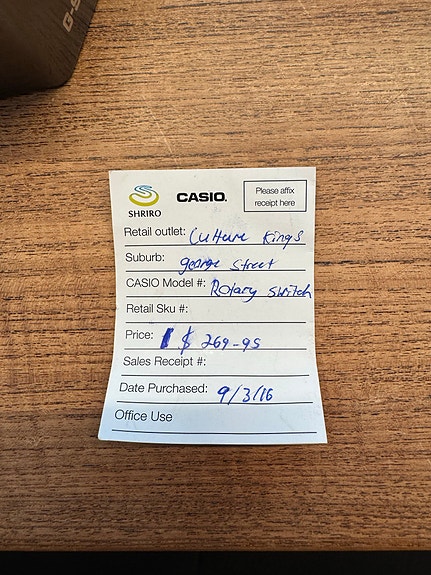 G-S
SHRIRO
CASIO.
Please affix
receipt here
Retail outlet: Culture Kings
Suburb: george Street
CASIO Model #: Rotary Switch
Retail Sku #:
Price: $ 269-95
Sales Receipt #:
Date Purchased: 9/3/16
Office Use